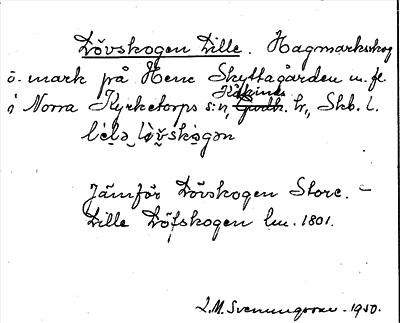 Lövskogen Lille. Hagmarksskog
o. mark på Hene Skyttagården m. fl.
i Norra Kyrketorps s:n, Kåkinds hr., Skb. l.
Jämför Lövskogen Store. –
Lille Löfskogen lm. 1801.
L. M. Svenungsson. 1950.